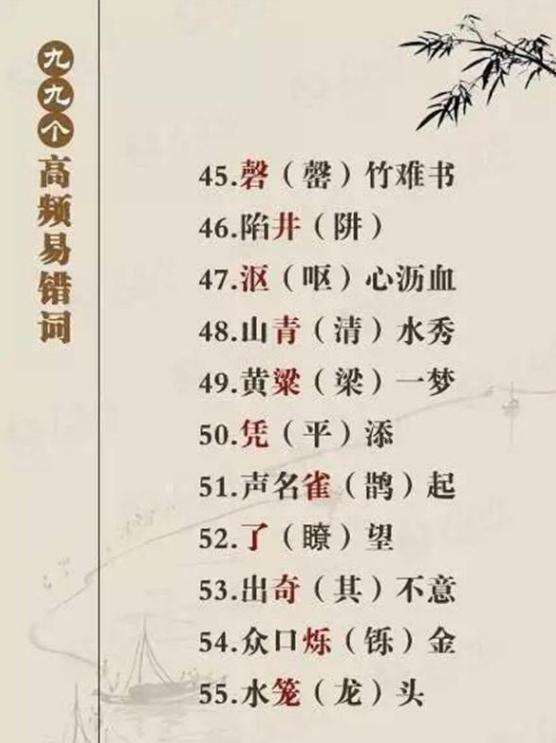 九九个高频易错词
45.磬（罄）竹难书
46.陷井（阱）
47.沤（呕）心沥血
48.山青（清）水秀
49.黄粱（梁）一梦
50.凭（平）添
51.声名雀（鹊）起
52.了（瞭）望
53.出奇（其）不意
54.众口烁（铄）金
55.水笼（龙）头